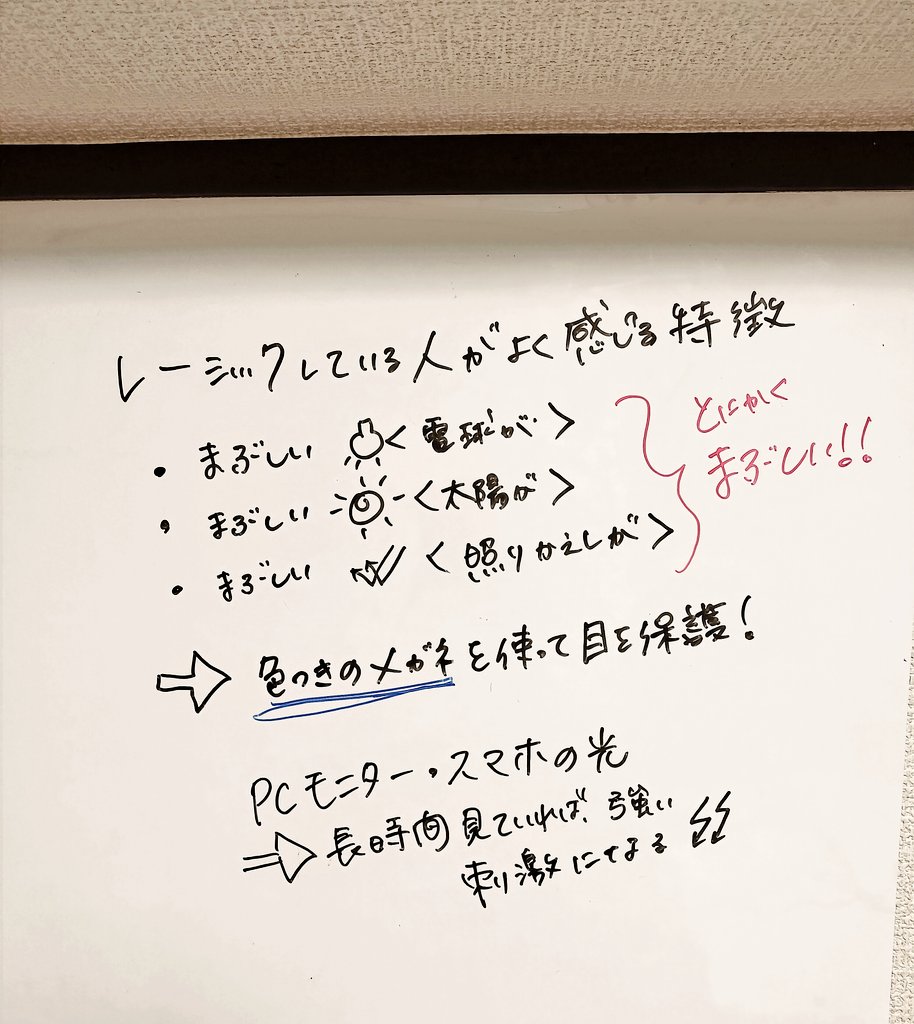 レーシックしている人がよく感じる特徴
・まぶしい <電球が>
・まぶしい <太陽が>
・まぶしい <照りかえしが>
とにかく
まぶしい!!
⇒ 色つきのメガネを使って目を保護!
PCモニター・スマホの光
⇒ 長時間見ていれば、強い
刺激になる